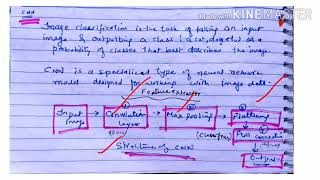 CNN
MADE WITH
KINEMASTER
Image classification is the task of taking an input
image & outputing a class (a cat, dog, etc) or a
probability of classes that best describes the image.
CNN is a specialized type of neural network
model designed for working with image data.
Feature extractor
Input Image
Convolution layer
Max Pooling
Flattening
(Classifier)
Full connection
Output
Structure of CNN